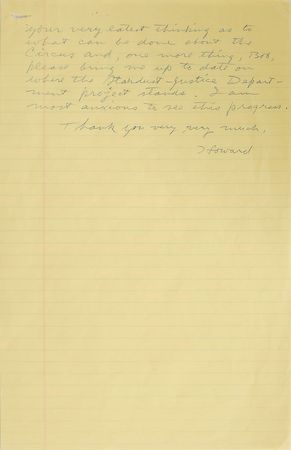 your very latest thinking as to
what can be done about the
Circus and, one more thing, Bob,
please bring me up to date on
where the Stardust-Justice Depart-
ment project stands. I am
most anxious to see this progress.
Thank you very, very much,
Howard